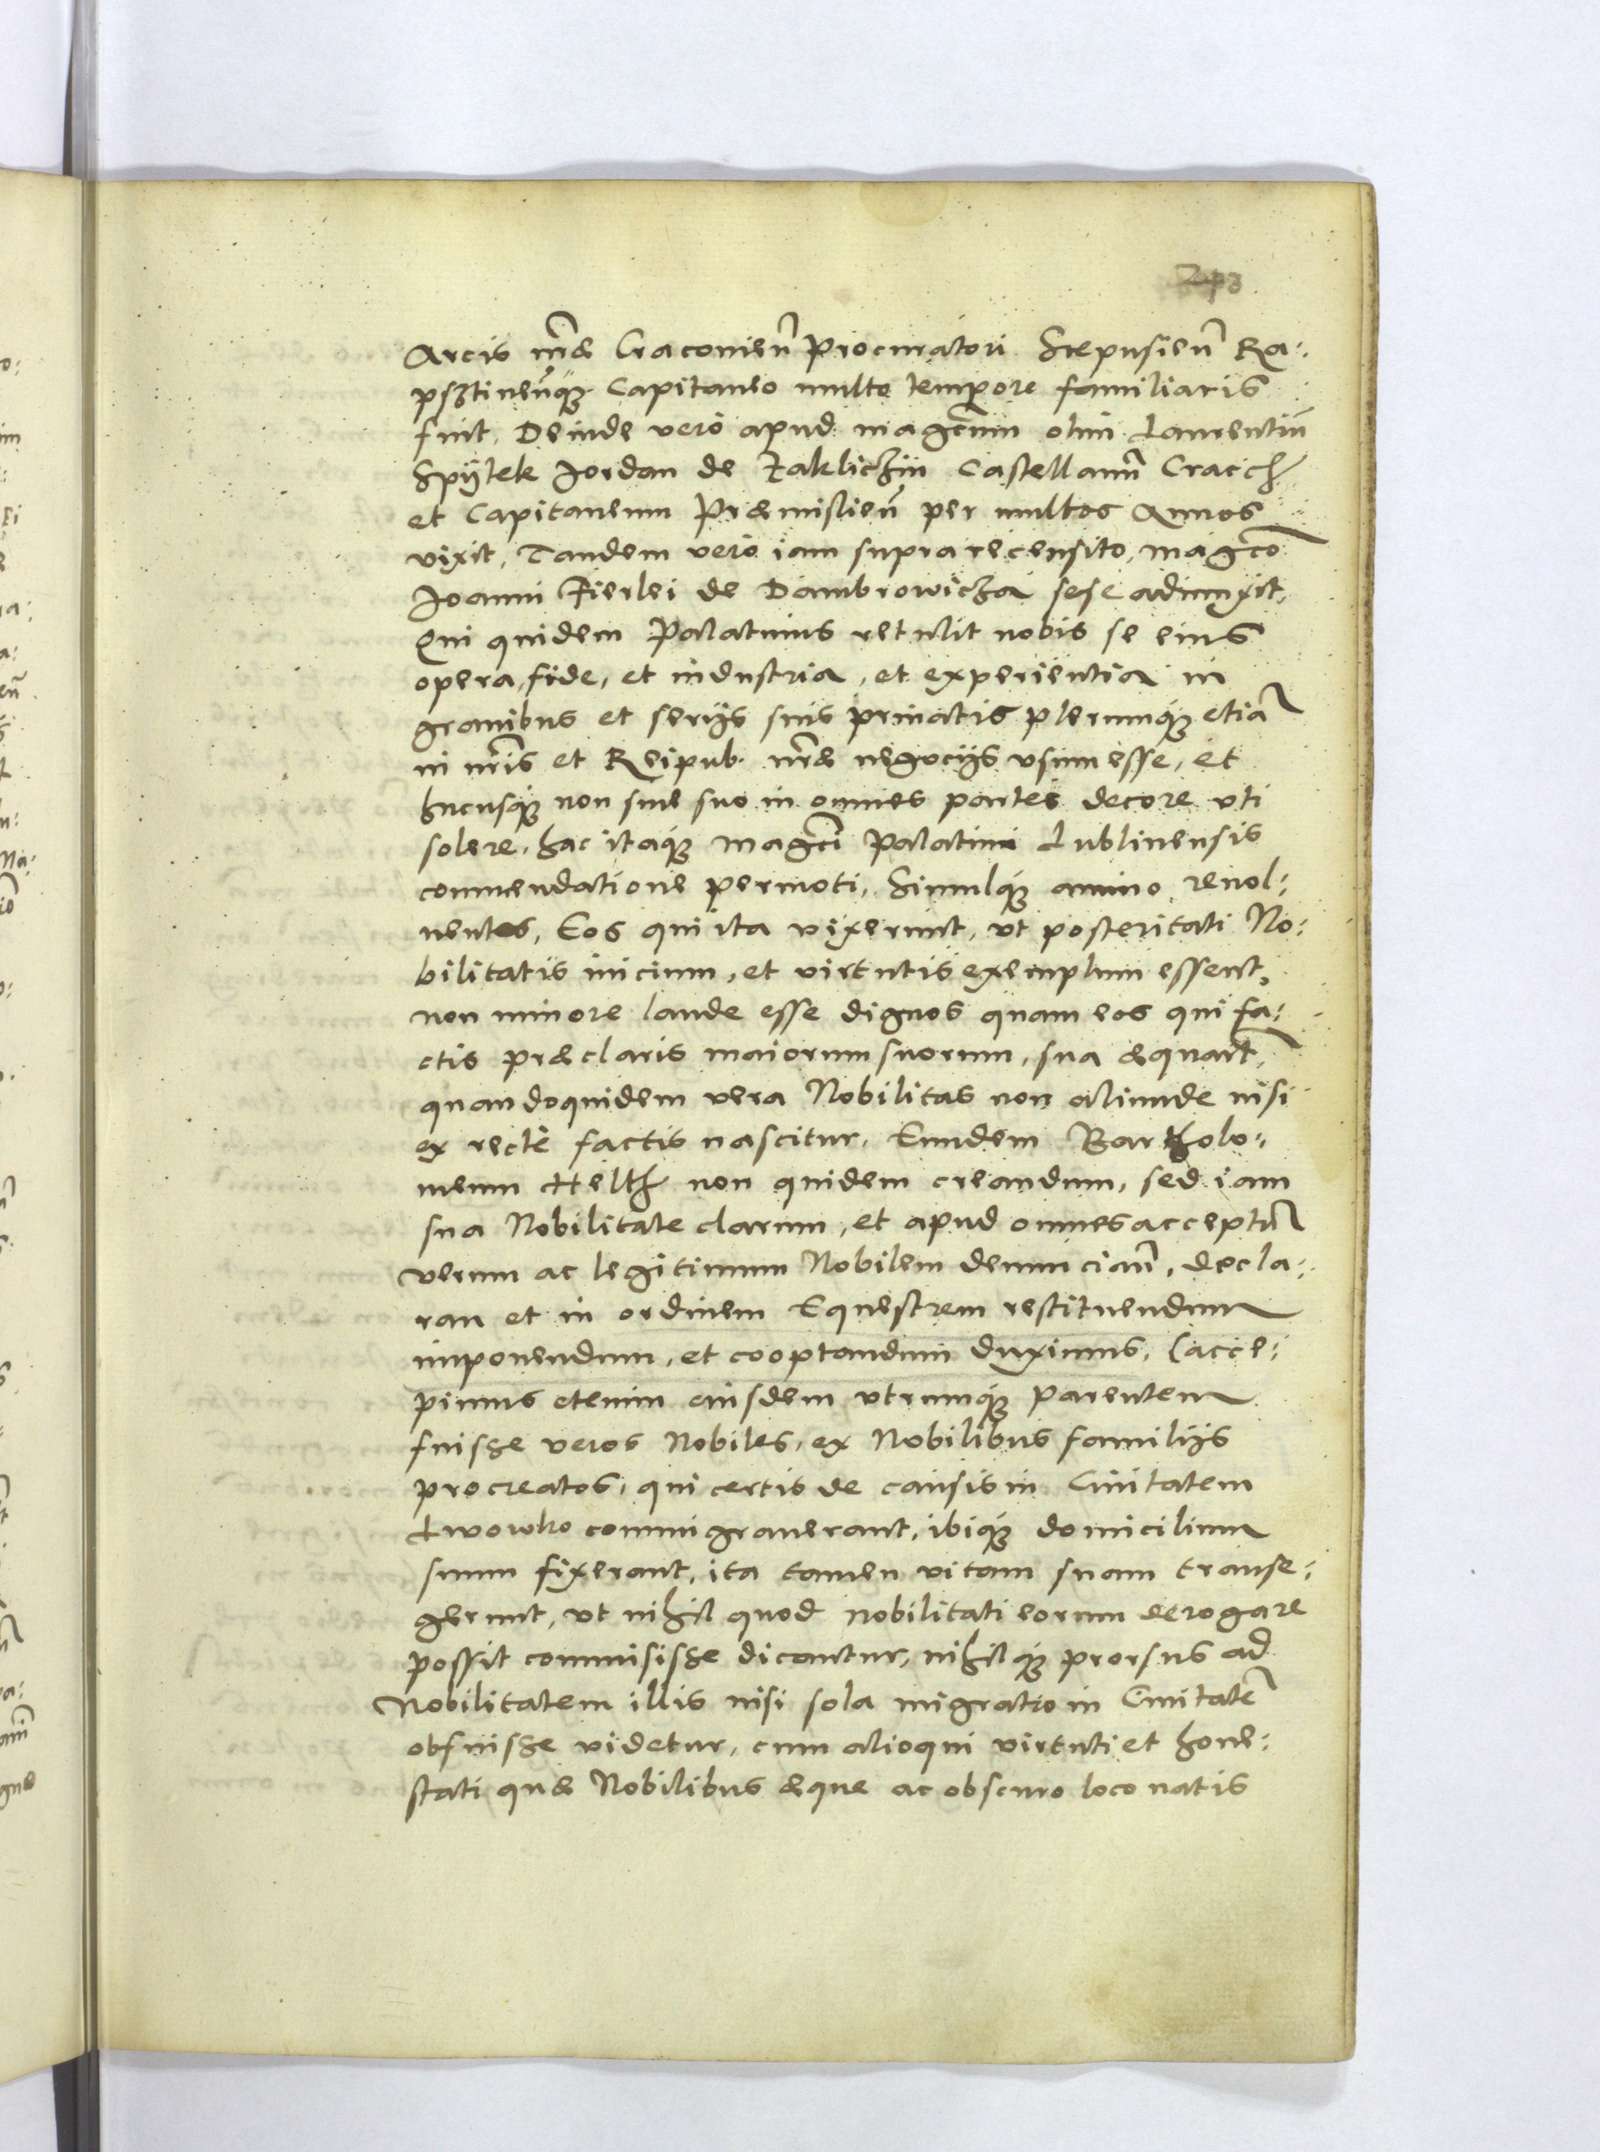 Arcis nr̃æ Cracovieñ Procuratori Scepusieñ Ra:
psztineñq; Capitaneo multo tempore familiaris
fuit, Deinde verò apud magc̃um olim Laurentiũ
Spÿtek Jordan de Zakliczin Castellanũ Cracoñ
et Capitaneum Præmislieñ per multos Annos
vixit, Tandem verò iam supra recensito, magc̃o
Joanni Fierlei de Dambrowicza sese adiunxit,
Qui quidem Palatinus retulit nobis se eius
opera, fide, et industria, et experientia in
gravibus et serijs suis privatis plerumq; etiã
in nr̃is et Reipub. nr̃æ negocijs usum esse, et
hucusq; non sine suo in omnes partes decore uti
solere, hac itaq; magc̃i Palatini Lublinensis
commendatione permoti, Simulq; animo revol:
ventes, Eos qui ita vixerunt, ut posteritati No:
bilitatis inicium, et virtutis exemplum essent,
non minore laude esse dignos quam eos qui fa:
ctis præclaris maiorum suorum, sua æquant,
quandoquidem vera Nobilitas non aliunde nisi
ex rectè factis nascitur, Eundem Bartholo:
meum Helth non quidem creandum, sed iam
sua Nobilitate clarum, et apud omnes acceptũ
verum ac legitimum Nobilem denunciañ, decla:
ran et in ordinem Equestrem restituendum
imponendum, et cooptandum duximus, (acce:
pimus etenim eiusdem utrumq; Parentem
fuisse veros Nobiles, ex Nobilibus familijs
procreatos, qui certis de causis in Civitatem
Lwowko commigraverant, ibiq; domicilium
suum fixerant, ita tamen vitam suam transe:
gerunt, ut nihil quod nobilitati eorum derogare
possit commisisse dicantur, nihilq; prorsus ad
Nobilitatem illis nisi sola migratio in Civitatẽ
obfuisse videtur, cum alioqui virtuti et hone:
stati quæ Nobilibus æque ac obscuro loco natis